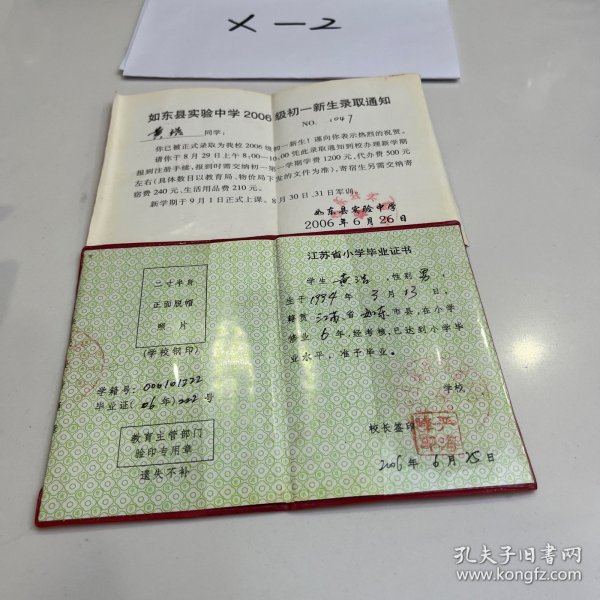 X-2
如东县实验中学2006级初一新生录取通知
NO. 1047
黄浩 同学：
你已被正式录取为我校2006级初一新生！谨向你表示热烈的祝贺。
请你于8月29日上午8.00—10.00凭此录取通知到校办理新学期
报到注册手续，报到时需交纳初一第一学期学费1200元，代办费500元
左右(具体数目以教育局、物价局下发的文件为准)，寄宿生另需交纳寄
宿费240元，生活用品费210元。
新学期于9月1日正式上课。8月30日、31日军训。
如东县实验中学
2006年6月26日
江苏省小学毕业证书
二寸半身
正面脱帽
照片
(学校钢印)
学籍号：006101222
毕业证(06年)222号
教育主管部门
验印专用章
遗失不补
学生 黄浩，性别 男，
生于1994年3月13日，
籍贯 江苏省 如东 市县，在小学
修业6年，经考核，已达到小学毕
业水平，准予毕业。
学校
校长签印
2006年6月25日
孔夫子旧书网
www.kongfz.com